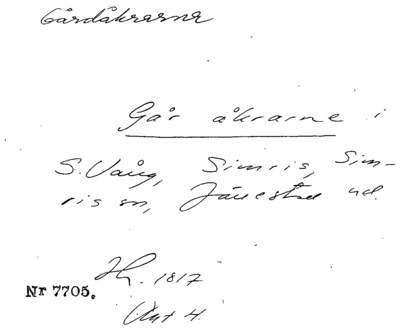 Gårdåkrarna
Går åkrarne i
S. Vång, Simris, Sim-
ris sn, Järrestad hd.
1817
Nr 7705.
Akt 4.